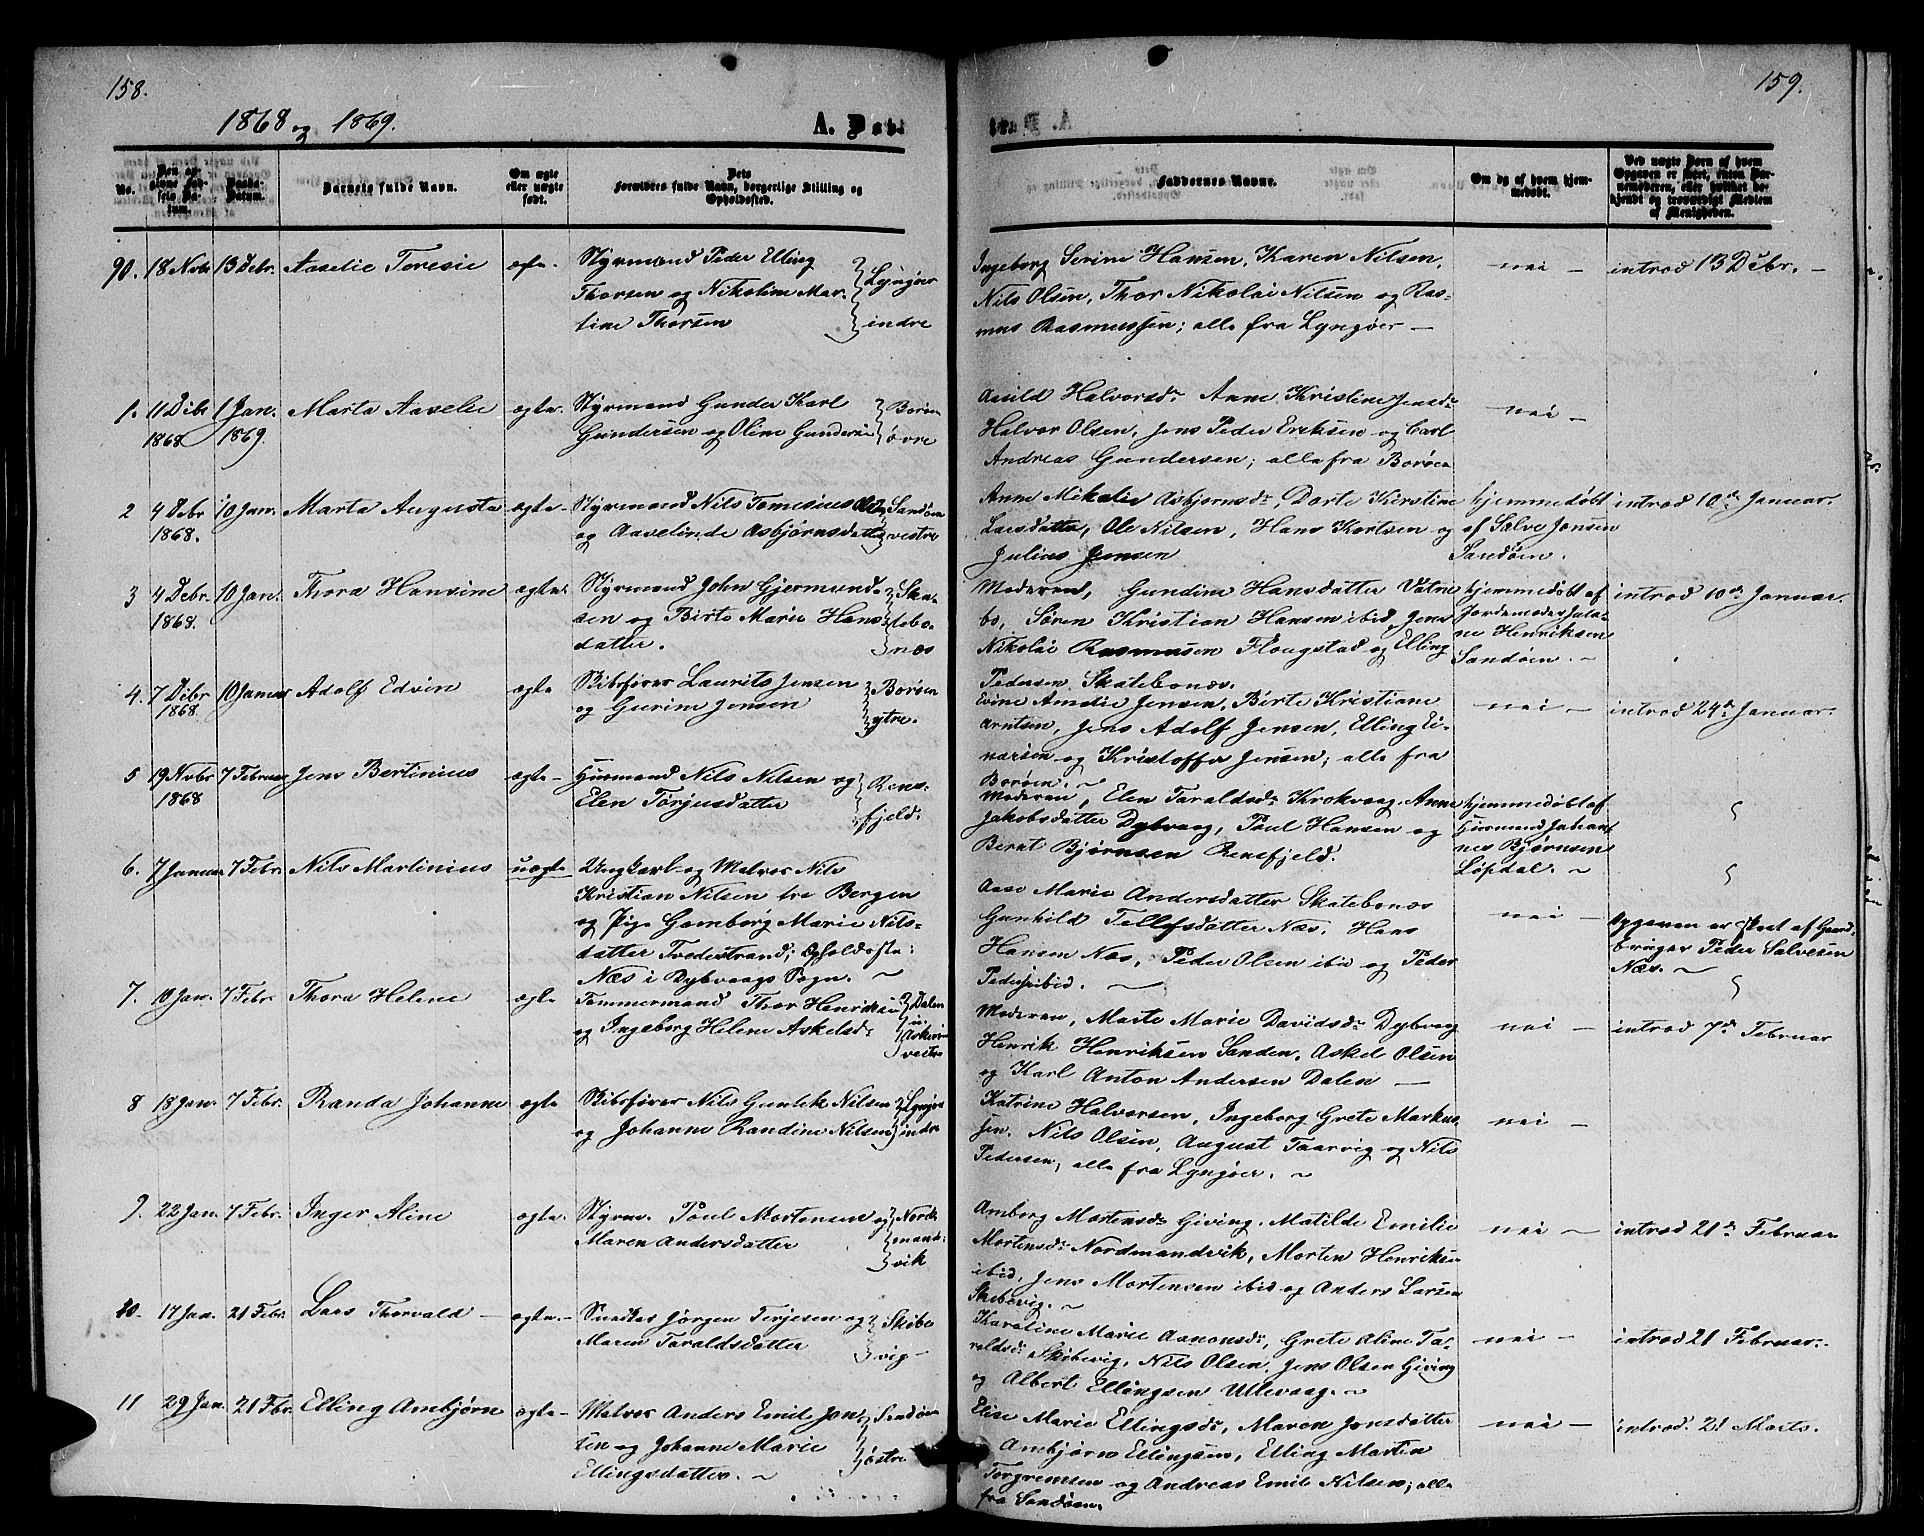 158.
1868 og 1869.
A. Døbt
No.
Den angivne Fødsels Datum.
Daabs-Datum.
Barnets fulde Navn.
Om ægte eller uægte født.
Forældres fulde Navn, borgerlige Stilling og Opholdssted.
90. 18 Novbr 13 Debr. Aaselie Teresie ægte. Styrmand Peder Elling
Thorsen og Nikoline Mar- Lyngøer
tine Thorsen indre
1. 11 Debr 1 Jan. Marta Aaselie ægte. Styrmand Gunder Karl Borøen
1868 1869. Gundersen og Oline Gundersen øvre
2 4 Debr 10 Jan. Marta Augusta ægte Styrmand Nils Tomesius Ols Sandøen
1868. og Aaselinde Asbjørnsdatter vestre
3 4 Debr. 10 Jan. Thora Hansine ægte Styrmand John Gjermund- Ska-
1868. sen og Birte Marie Hans tebo-
datter. næs
4. 7 Debr 10 Januar Adolf Edvin ægte Skibsfører Laurits Jensen Borøen
1868. og Gurine Jensen ytre.
5 19 Novbr 7 Februar Jens Bertinius ægte Huusmand Nils Nilsen og Rens-
1868 Elen Torjusdatter fjeld.
6. 7 Januar 7 Febr. Nils Martinius uægte Ungkarl og Matros Nils
Kristian Nilsen fra Bergen
og Pige Gamborg Marie Nils-
datter Tvedestrand; Opholdsste:
Næs i Dybvaags Sogn.
7. 10 Jan. 7 Febr. Thora Helene ægte Tømmermand Thor Henriksen Dalen
og Ingeborg Helene Askelsd: u.
Askerøen
vestre
8 18 Jan. 7 Febr. Randa Johanne ægte Skibsfører Nils Gunlek Nilsen Lyngøer
og Johanne Randine Nilsen indre
9. 22 Jan. 7 Febr. Inger Aline ægte. Styrm. Poul Mortensen og Nord-
Maren Andersdatter mands-
vik
10. 17 Jan. 21 Febr. Lars Thorvald ægte. Snedker Jørgen Terjesen og Skibe
Maren Taraldsdatter vig
11 29 Jan. 21 Fbr. Elling Ambjørn ægte Matros Anders Emil Jon- Sandøen
sen og Johanne Marie østre
Ellingsdatter.
159.
Faddernes Navne.
Om og af hvem hjemmedøbt.
Ved uægte Børn af hvem Opgaven er skeet, enten Barnemoderen, eller hvilket bekjendt og troværdigt Medlem af Menigheden.
Ingeborg Serine Hansen, Karen Nilsen, nei introd 13 Debr.
Nils Olsen, Thor Nikolai Nilsen og Ras-
mus Rasmussen; alle fra Lyngøer
Aasild Halvorsd: Anne Kristine Jensd: nei
Halvor Olsen, Jens Peder Eriksen og Carl
Andreas Gundersen; alle fra Borøen
Anne Mikalie Asbjørnsd: Dorte Kirstine hjemmedøbt introd 10de Januar.
Larsdatter, Ole Nilsen, Hans Kortsen og af Salve Jonsen
Julius Jensen Sandøen.
Moderen, Gundine Hansdatter Vatne hjemmedøbt af introd 10de Januar.
bo, Søren Kristian Hansen ibid, Jens Jordemoder Jula-
Nikolai Rasmussen Flougstad og Elling ne Henriksen
Pedersen Skatebonæs. Sandøen.
Evine Amalie Jensen, Birte Kristiane nei introd 24de Januar.
Arntsen, Jens Adolf Jensen, Elling Ei-
narsen og Kristoffer Jensen; alle fra
Borøen.
Moderen, Elen Taraldsd: Krokvaag. Anne hjemmedøbt af
Jakobsdatter Dybvaag, Poul Hansen og Huusmand Johan-
Bernt Bjørnsen Rensfjeld. nes Bjørnsen
Løvdal.
Aase Marie Andersdatter Skatebonæs nei Opgaven er skeet af Gaard-
Gunhild Tellefsdatter Næs, Hans bruger Peder Salvesen
Hansen Næs, Peder Olsen ibid og Peder Næs.
Peders: ibid.
Moderen, Marte Marie Davidsd: Dybvaag nei introd 7de Februar
Henrik Henriksen Sanden, Askel Olsen
og Karl Anton Andersen Dalen
Katrine Halvorsen, Ingeborg Grete Markus- nei
sen. Nils Olsen, August Taarvig og Nils
Pedersen; alle fra Lyngøer.
Amborg Mortensd: Giving, Matilde Emilie nei introd 21de Februar
Mortensd: Nordmandvik, Morten Henriksen
ibid, Jens Mortensen ibid og Anders Larsen
Skibevig.
Karoline Marie Aanonsd: Grete Aline Ta- nei introd 21 Februar.
raldsd: Skibevig, Nils Olsen, Jens Olsen Giving
og Albert Ellingsen Ullevaag.
Elise Marie Ellingsd: Maren Jonsdatter nei introd. 21 Marts.
Ambjørn Ellingsen, Elling Martin
Torgremsen og Andreas Emil Nilsen; alle
fra Sandøen.